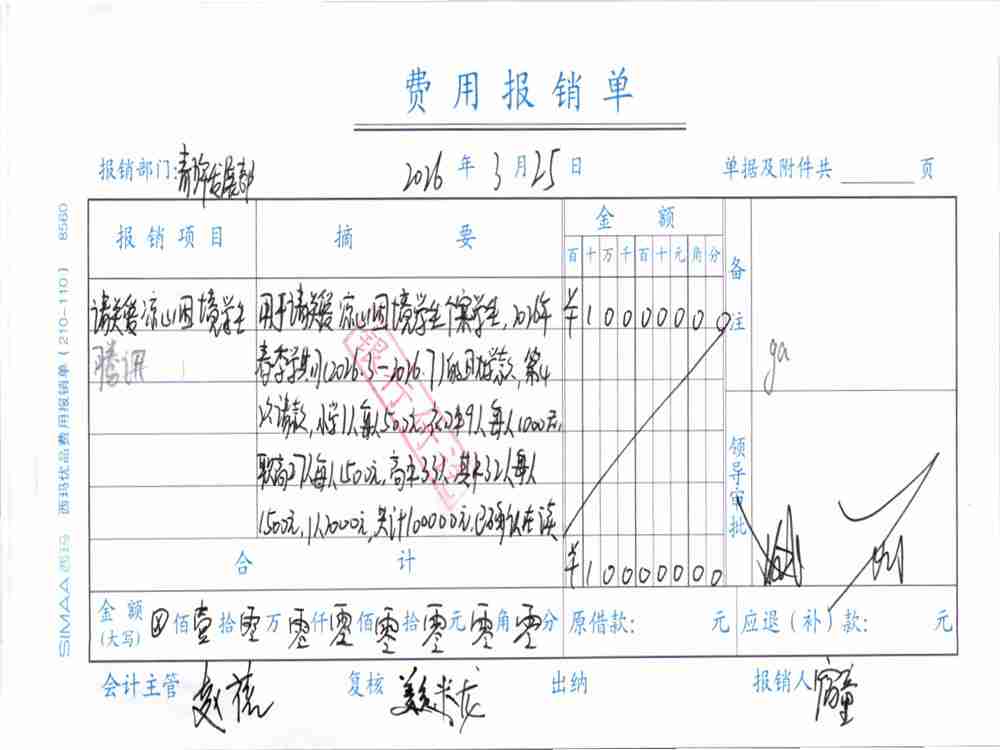 费用报销单
报销部门:青少年发展部 2026年3月25日 单据及附件共 页
报销项目 摘要 金额 备注
百十万千百十元角分
请关爱凉山困境学生 用于请关爱凉山困境学生个案学生,2026年 ¥10000000
腾讯 春季学期(2026.3-2026.7)的助学款,第4
次请款,小学1人每人500元,初中9人每人1000元,
职高27人每人1500元,高中33人,其中32人每人
1500元,1人2000元,共计100000元,已确认在读
银行付讫
ga
领导审批
合计 ¥10000000
金额(大写) ⊗佰壹拾零万零仟零佰零拾零元零角零分 原借款: 元 应退(补)款: 元
会计主管 复核 出纳 报销人
SIMAA 西玛 西玛优品费用报销单(210-110) 8560